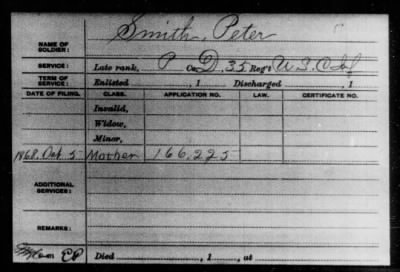 Smith, Peter
NAME OF SOLDIER:
SERVICE: Late rank, P Co. D, 35 Reg't U.S.C. Inf
TERM OF SERVICE: Enlisted , 1 Discharged , 1
DATE OF FILING. CLASS. APPLICATION NO. LAW. CERTIFICATE NO.
Invalid,
Widow,
Minor,
1968. Oct 5 Mother 166,225
ADDITIONAL SERVICES:
REMARKS:
Died , 1 , at